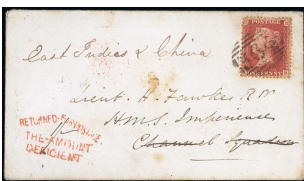 East Indies & China
Lieut. H. Fawkes, R.N
H.M.S. Imperieuse
Channel Squadron
RETURNED FOR POSTAGE,
THE AMOUNT
DEFICIENT
POSTAGE
ONE PENNY